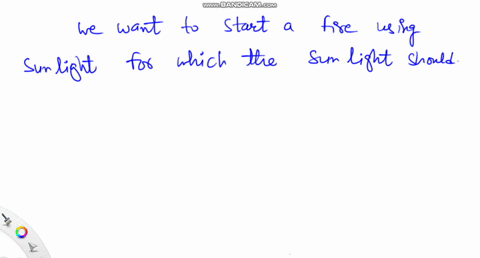 www.BANDICAM.com
we want to start a fire using
sunlight for which the sunlight should.